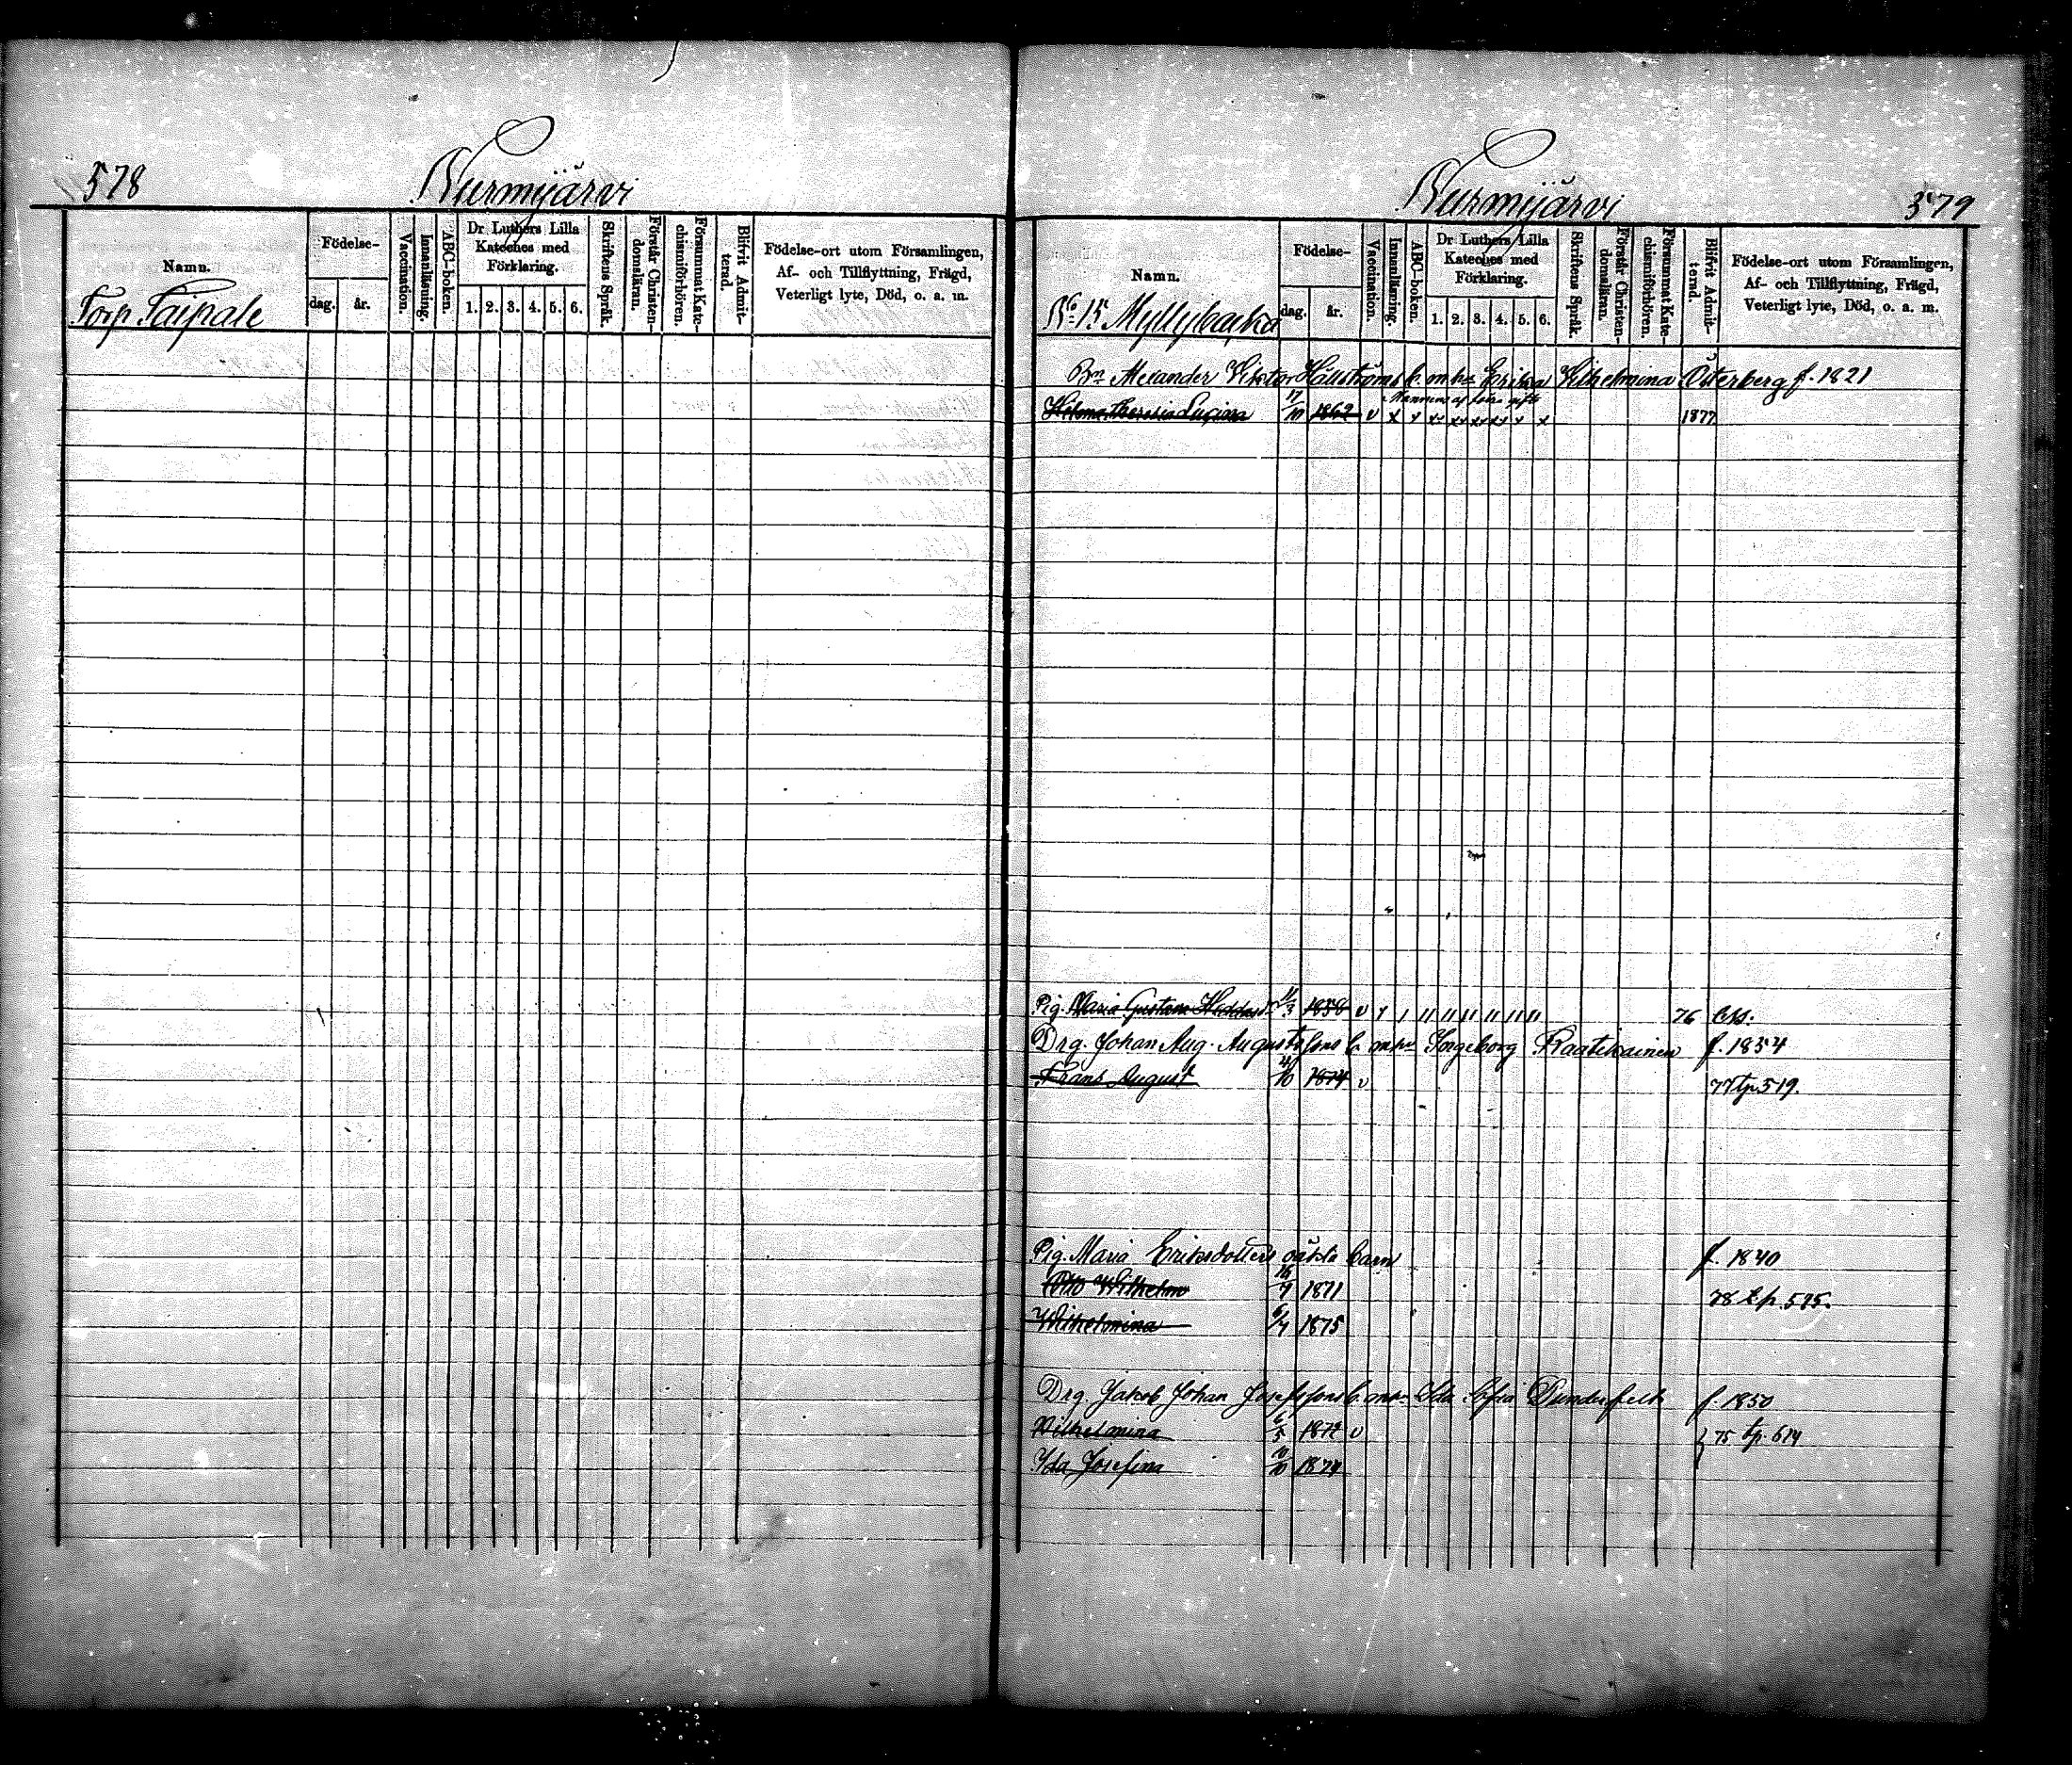 578
Nurmijärvi
Namn.
Födelse-
dag.
år.
Vaccination.
Innanläsning.
ABC-boken.
Dr Luthers Lilla
Kateches med
Förklaring.
1. 2. 3. 4. 5. 6.
Skriftens Språk.
Förstår Christen-
domsläran.
Försummat Kate-
chismiförhören.
Blifvit Admit-
terad.
Födelse-ort utom Församlingen,
Af- och Tillflyttning, Frägd,
Veterligt lyte, Död, o. a. m.
Torp Taipale
Nurmijärvi
579
Namn.
Födelse-
dag.
år.
Vaccination.
Innanläsning.
ABC-boken.
Dr Luthers Lilla
Kateches med
Förklaring.
1. 2. 3. 4. 5. 6.
Skriftens Språk.
Förstår Christen-
domsläran.
Försummat Kate-
chismiförhören.
Blifvit Admit-
terad.
Födelse-ort utom Församlingen,
Af- och Tillflyttning, Frägd,
Veterligt lyte, Död, o. a. m.
No 15 Myllykoski
Bn Alexander Viktor Hällströms b. m. hu Erika Vilhelmina Österberg f. 1821
Hilma Theresia Lucina 17/10 1862 v x x xx xx xx xx x x 1877
Pig. Maria Gustava Heddasdr 11/3 1858 v 76
Drg. Johan Aug. Augustsfons b. m hu Ingeborg Raatikainen f. 1854
Frans August 4/10 1874 v 77 tp 519.
Pig. Maria Eriksdotters oäkta barn f. 1840
Otto Wilhelm 16/9 1871 78 t.p. 595.
Wilhelmina 6/7 1875
Drg. Jakob Johan Josefsfons b. m hu Ida Sofia Dunderfelt f. 1850
Vilhelmina 6/5 1872 v } 75 tp. 614
Ida Josefina 10/10 1874